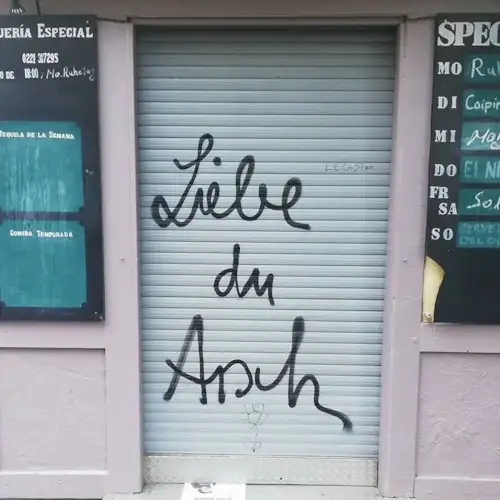 UERÍA ESPECIAL
0221 317295
O DE 18:00, Mo. Ruhetag
TEQUILA DE LA SEMANA
COMIDA TEMPORADA
Liebe
du
Arsch
SPEC
MO Ruh
DI Caipir
MI
DO El Ni
FR
SA Sol
SO